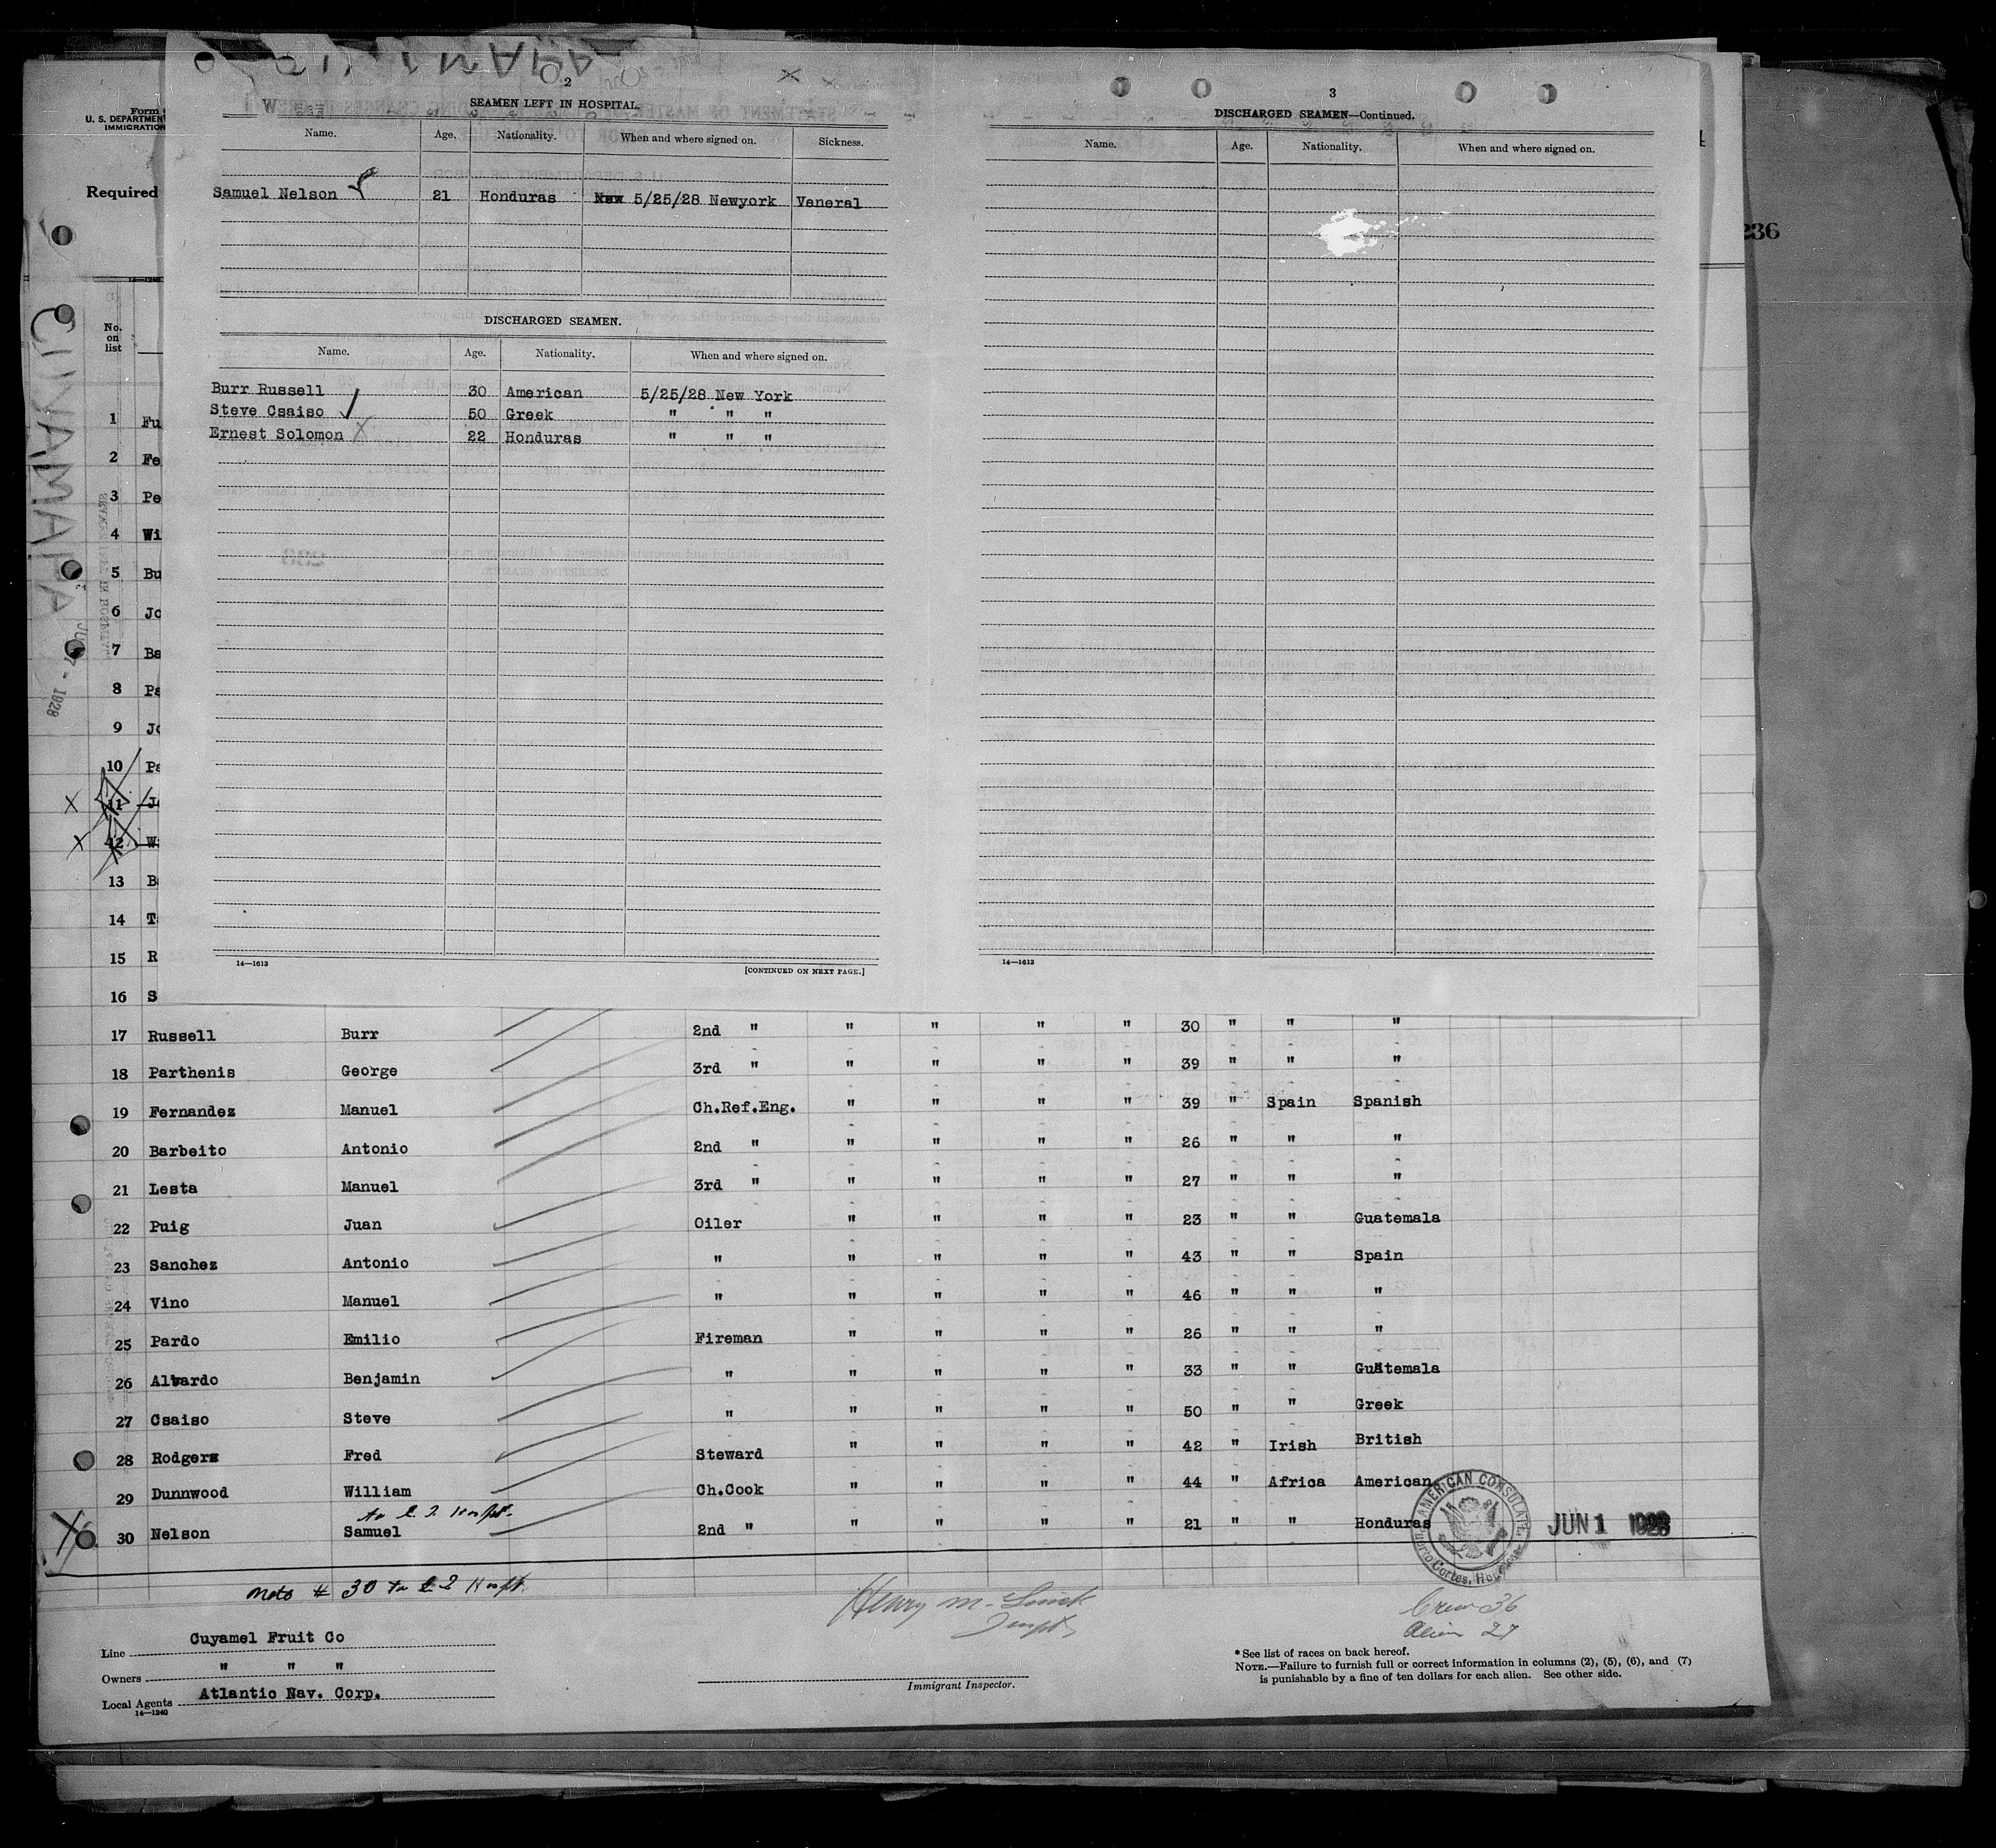 2
SEAMEN LEFT IN HOSPITAL.
Name. Age. Nationality. When and where signed on. Sickness.
Samuel Nelson 21 Honduras 5/25/28 Newyork Veneral
DISCHARGED SEAMEN.
Name. Age. Nationality. When and where signed on.
Burr Russell 30 American 5/25/28 New York
Steve Csaiso 50 Greek " " "
Ernest Solomon X 22 Honduras " " "
14—1613
[CONTINUED ON NEXT PAGE.]
3
DISCHARGED SEAMEN—Continued.
Name. Age. Nationality. When and where signed on.
14—1613
Form
U. S. DEPARTMEN
IMMIGRATION
Required
236
14—1240
No. on list
CUYAMAPA
JUN 7 - 1928
1 Fu
2 Fe
3 Pe
4 Wi
5 Bu
6 Jo
7 Ba
8 Pa
9 Jo
10 Pa
X 11 Jo
X 12 W
13 B
14 T
15 R
16 S
17 Russell Burr 2nd " " " " " 30 " " "
18 Parthenis George 3rd " " " " " 39 " " "
19 Fernandez Manuel Ch.Ref.Eng. " " " " 39 " Spain Spanish
20 Barbeito Antonio 2nd " " " " " 26 " " "
21 Lesta Manuel 3rd " " " " " 27 " " "
22 Puig Juan Oiler " " " " 23 " " Guatemala
23 Sanchez Antonio " " " " " 43 " " Spain
24 Vino Manuel " " " " " 46 " " "
25 Pardo Emilio Fireman " " " " 26 " " "
26 Alvardo Benjamin " " " " " 33 " " Guatemala
27 Csaiso Steve " " " " " 50 " " Greek
28 Rodgers Fred Steward " " " " 42 " Irish British
29 Dunnwood William Ch.Cook " " " " 44 " Africa American
to Hospt.
30 Nelson Samuel 2nd " " " " " 21 " " Honduras
AMERICAN CONSULATE, Puerto Cortes, Honduras
JUN 1 1928
Note # 30 to Hospt.
Henry M.
Inspt
Crew 36
Alien 27
Line Cuyamel Fruit Co
Owners " " "
Local Agents Atlantic Nav. Corp.
14—1240
Immigrant Inspector.
* See list of races on back hereof.
NOTE.—Failure to furnish full or correct information in columns (2), (5), (6), and (7)
is punishable by a fine of ten dollars for each alien. See other side.